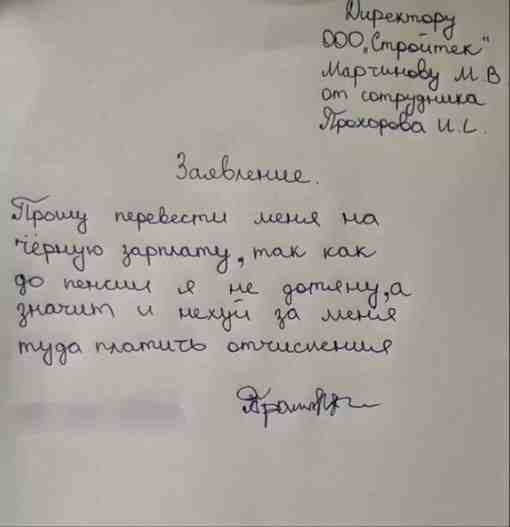 Директору
ООО „Стройтек"
Мартинову М.В
от сотрудника
Прохорова И.С.
Заявление.
Прошу перевести меня на
чёрную зарплату, так как
до пенсии я не дотяну, а
значит и нехуй за меня
туда платить отчисления